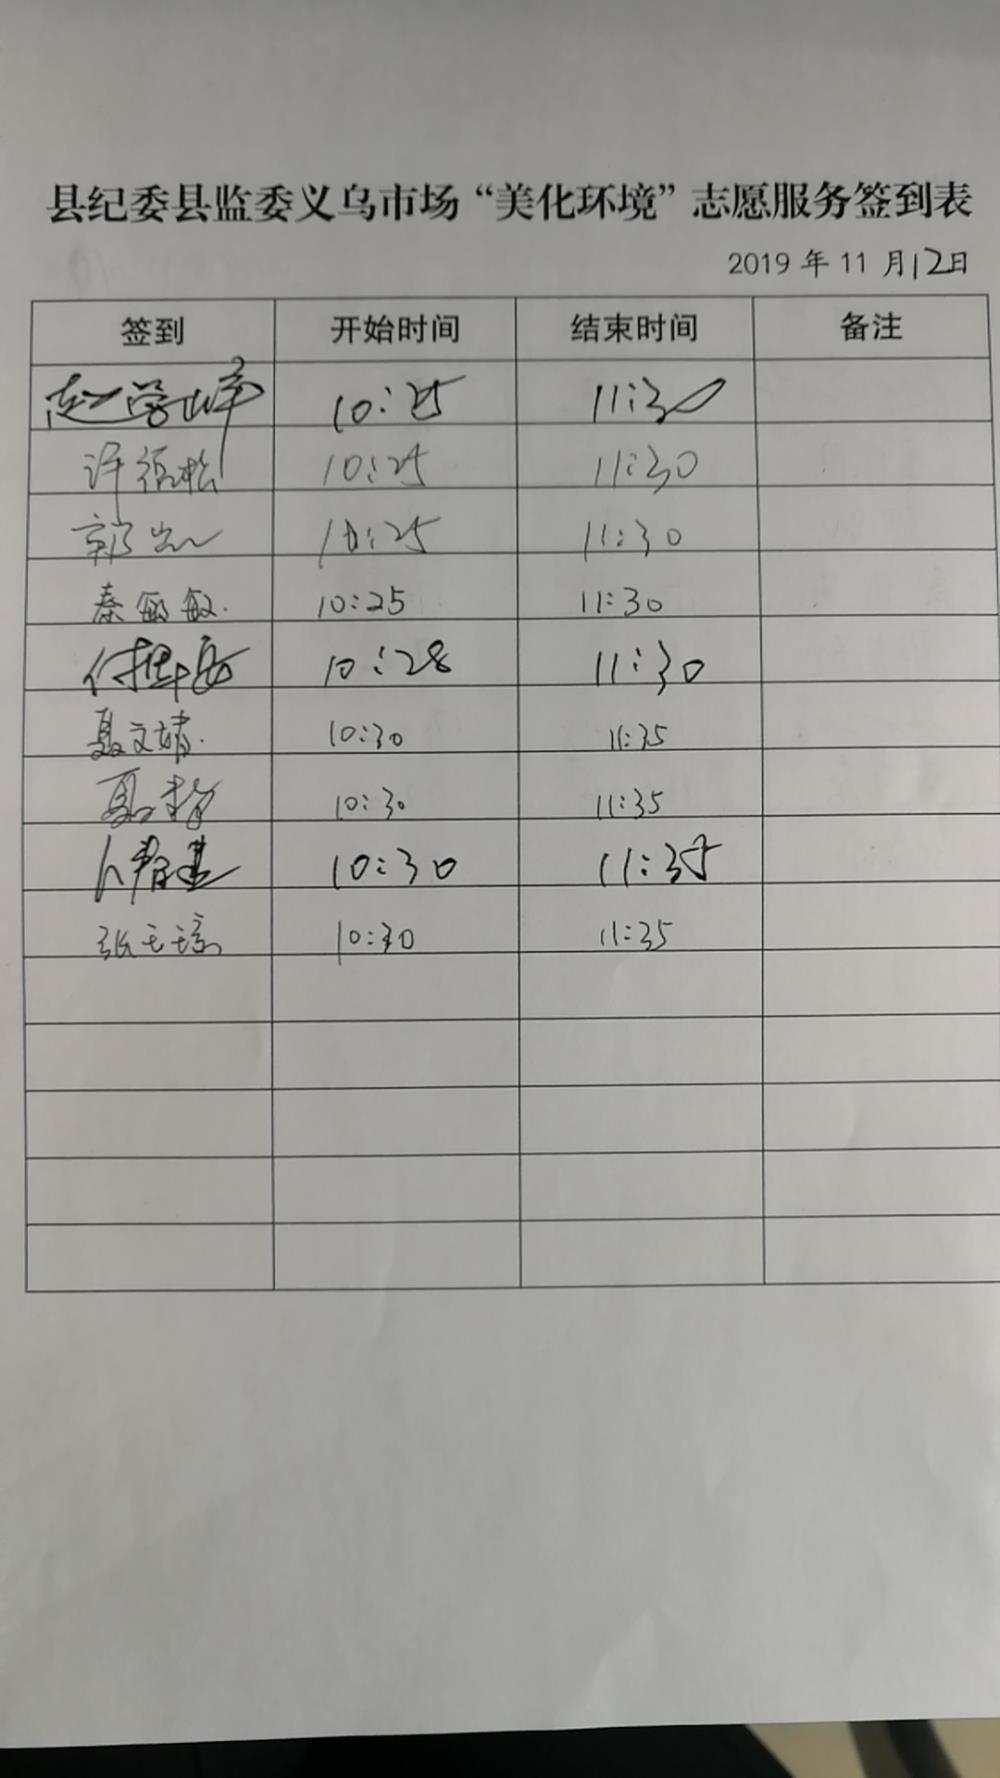 县纪委县监委义乌市场“美化环境”志愿服务签到表
2019 年 11 月12日
签到 开始时间 结束时间 备注
赵学峰 10:25 11:30
许 松 10:25 11:30
郭 10:25 11:30
秦敏敏. 10:25 11:30
付 10:28 11:30
聂文婧. 10:30 11:35
聂 10:30 11:35
10:30 11:35
张 10:30 11:35